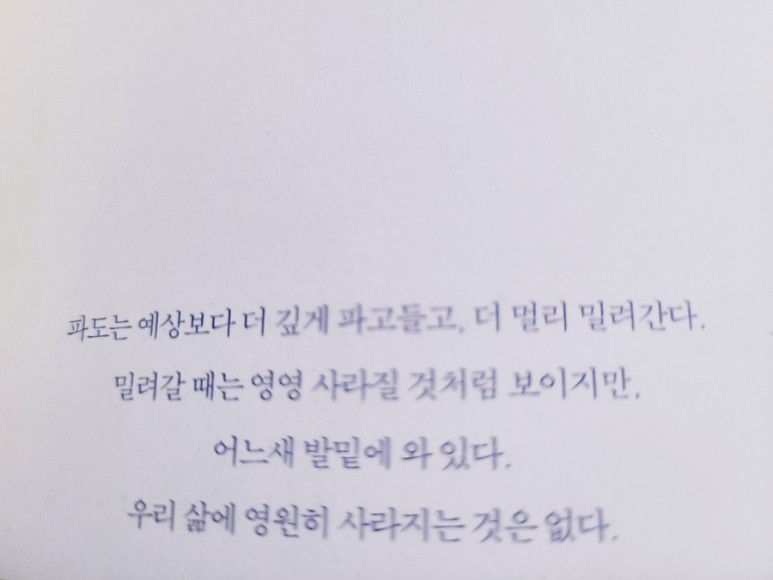 파도는 예상보다 더 깊게 파고들고, 더 멀리 밀려간다.
밀려갈 때는 영영 사라질 것처럼 보이지만,
어느새 발밑에 와 있다.
우리 삶에 영원히 사라지는 것은 없다.